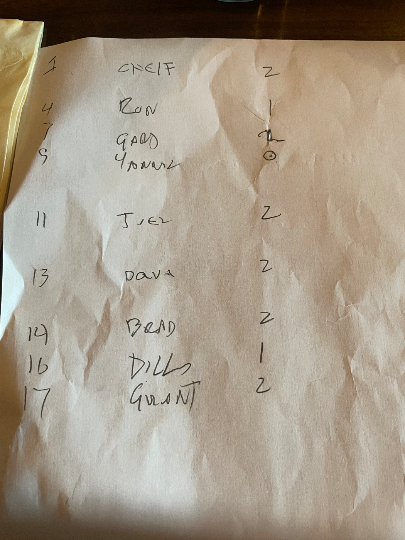 1 CHEIF 2
4 RON 1
7 GARD
9
11 JOEL 2
13 DAVE 2
14 BRAD 2
16 DILLS 1
17 GRANT 2